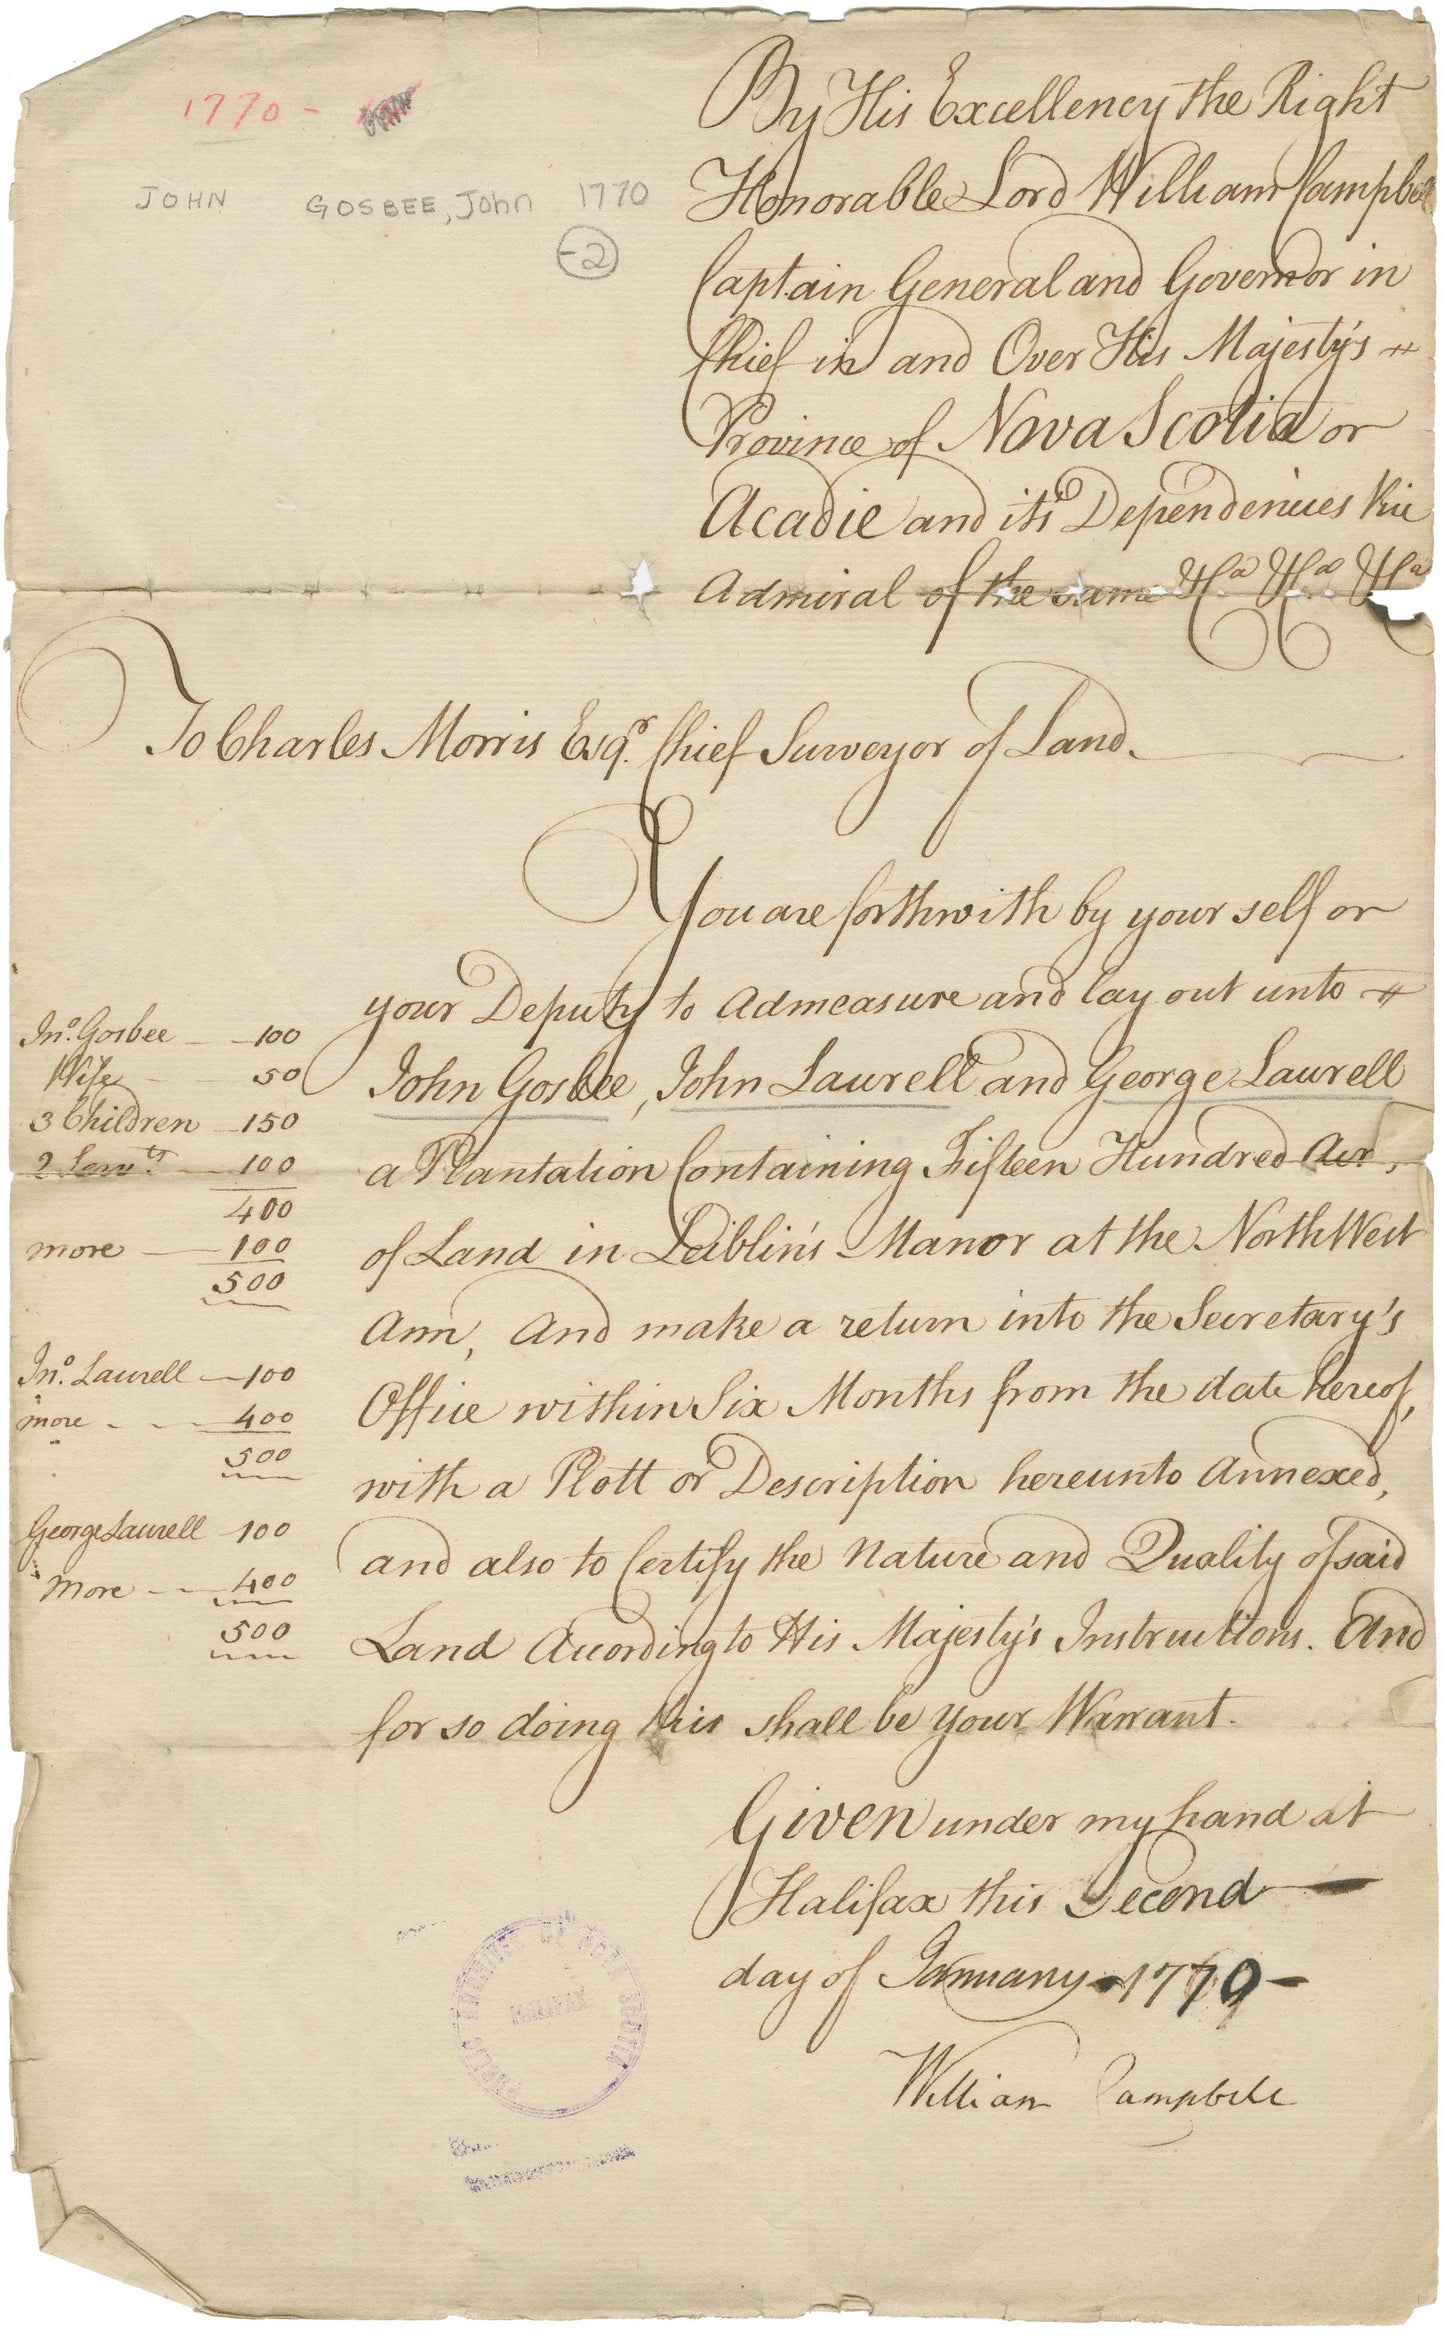 1770 -
JOHN GOSBEE, John 1770
-2
By His Excellency the Right
Honorable Lord William Campbell
Captain General and Governor in
Chief in and Over His Majesty's
Province of Nova Scotia or
Acadie and its Dependencies Vice
Admiral of the same &ca &ca &ca
To Charles Morris Esqr. Chief Surveyor of Land.
You are forthwith by your self or
your Deputy to admeasure and lay out unto
John Gosbee, John Laurell and George Laurell
a Plantation Containing Fifteen Hundred Acrs,
of Land in Leiblin's Manor at the North West
Arm, And make a return into the Secretary's
Office within Six Months from the date hereof,
with a Plott or Description hereunto Annexed,
and also to Certify the Nature and Quality of said
Land According to His Majesty's Instructions. And
for so doing this shall be your Warrant.
Jno. Gosbee 100
Wife 50
3 Children 150
2 Servts 100
400
more 100
500
Jno. Laurell 100
more 400
500
George Laurell 100
more 400
500
Given under my hand at
Halifax this Second
day of January 1770
William Campbell
PUBLIC ARCHIVES OF NOVA SCOTIA
HALIFAX